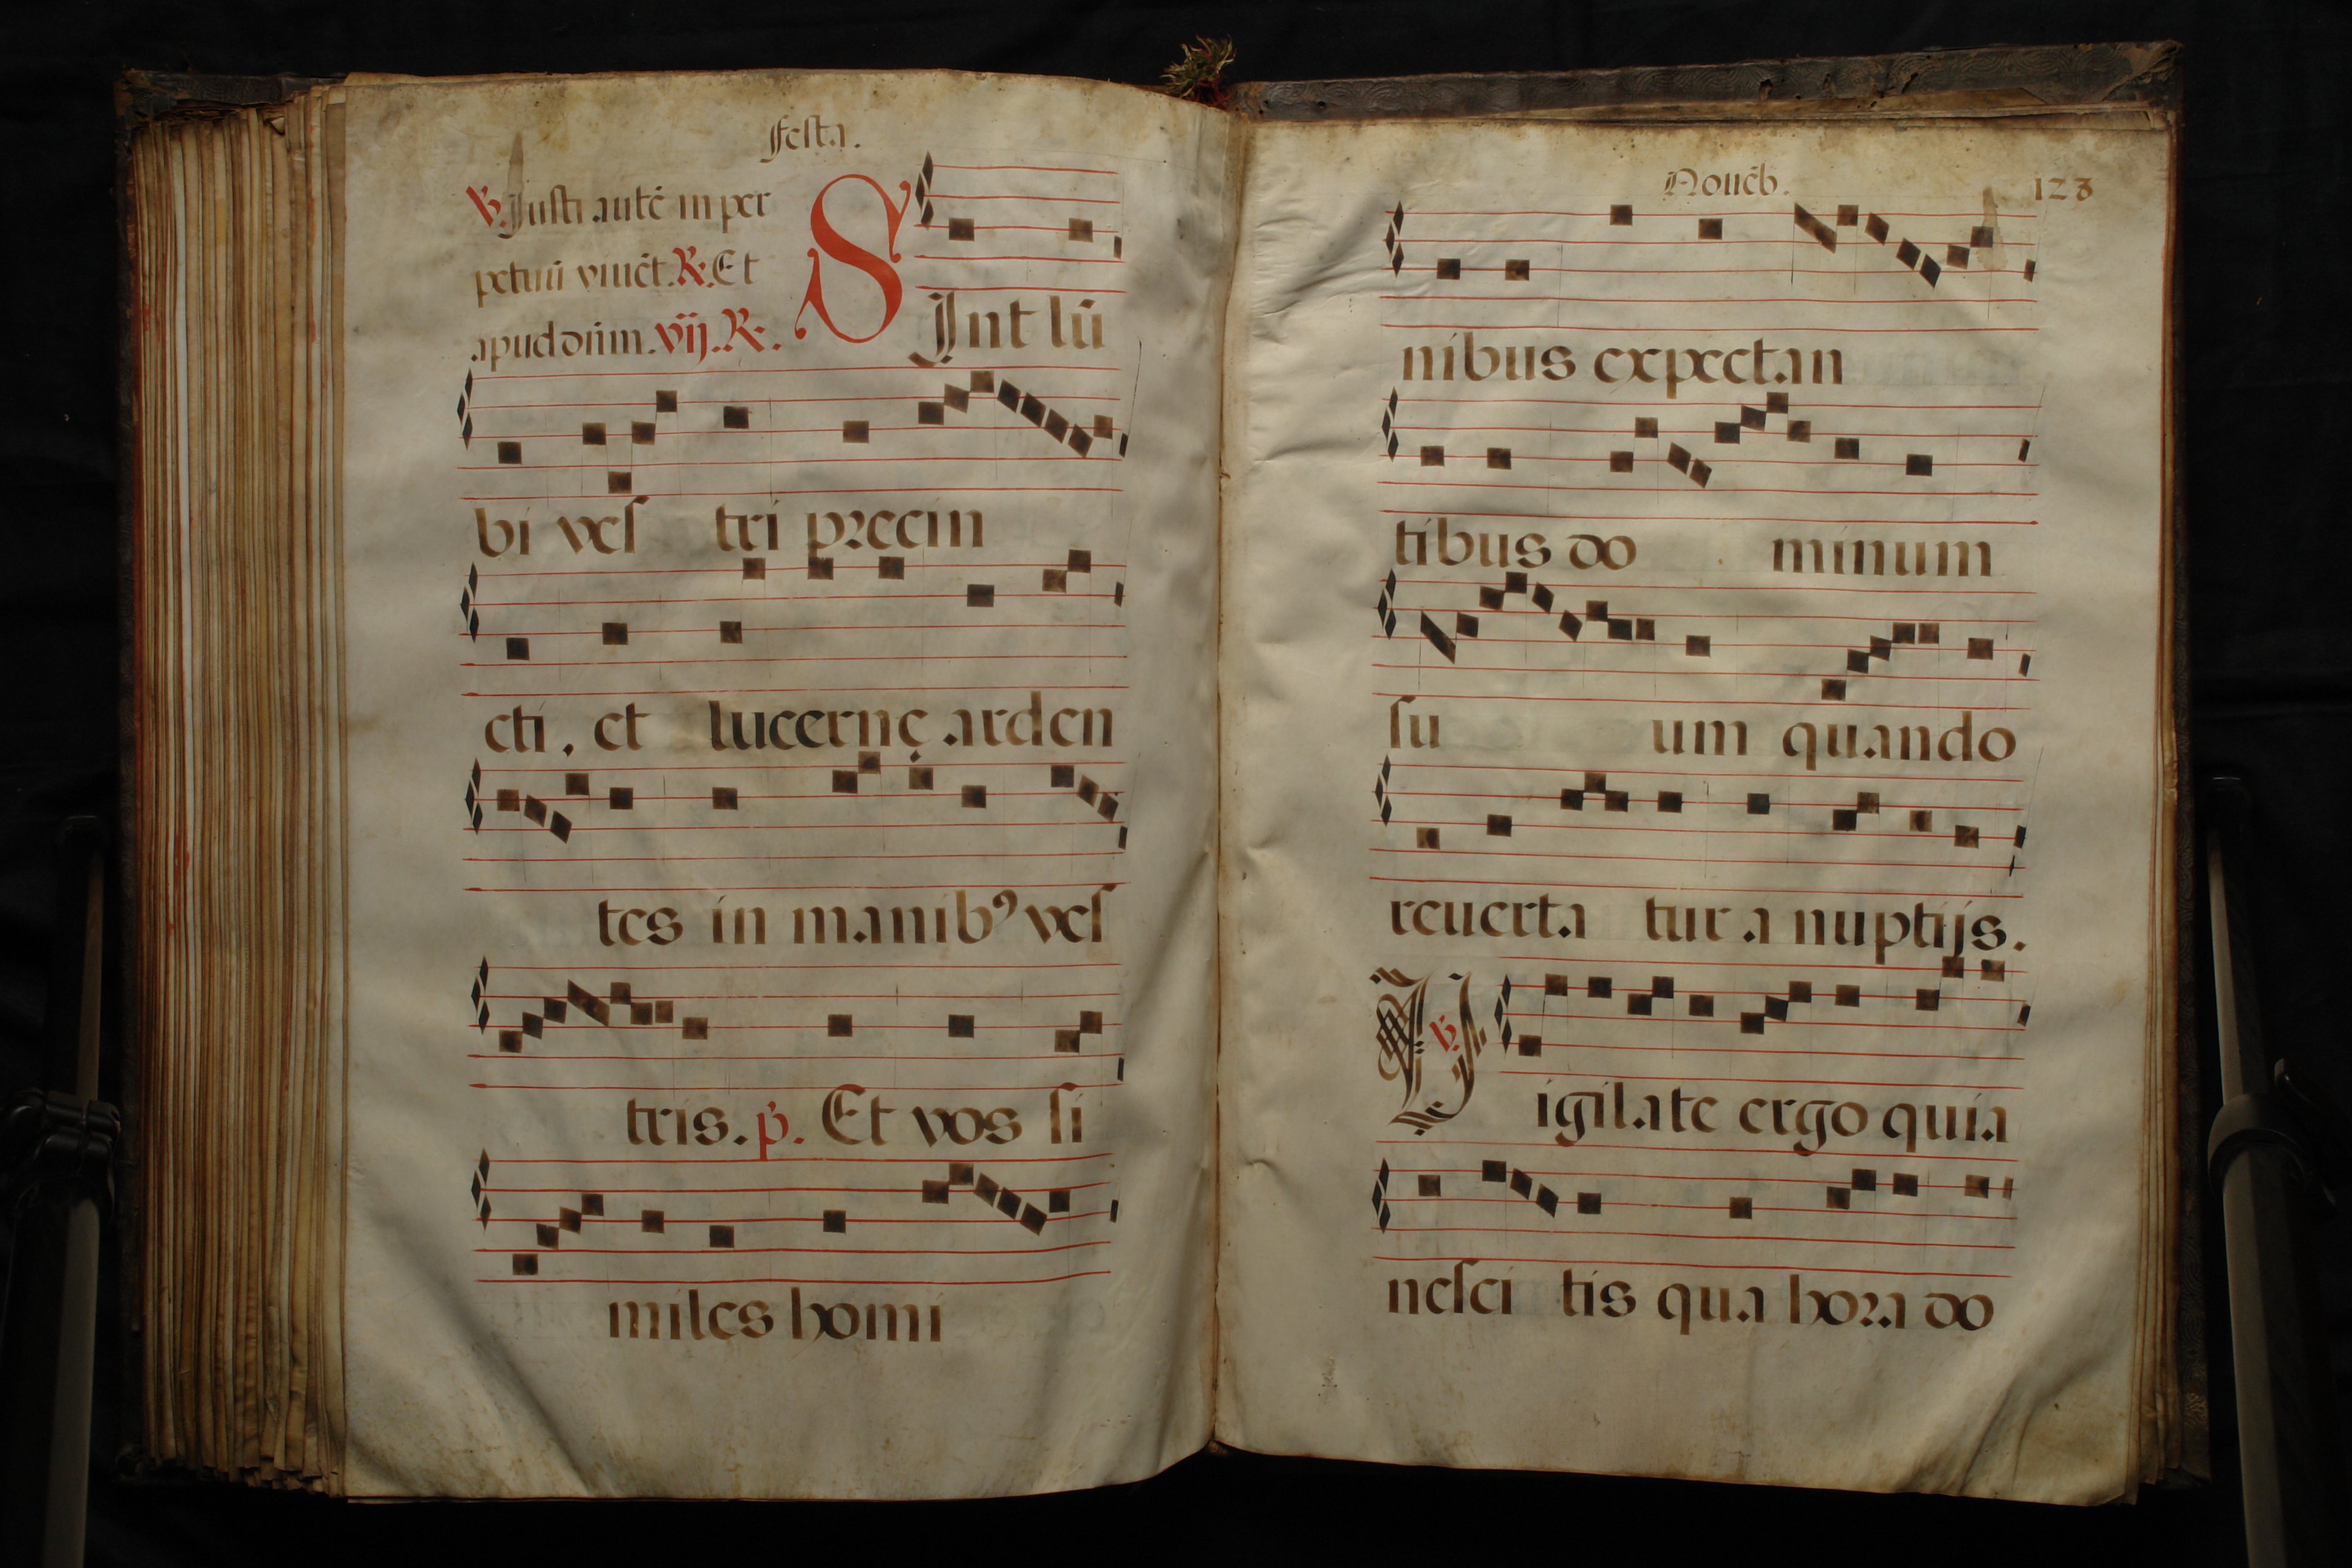 Festa.
℣. Justi autē in per
petuū viuēt. ℟. Et
apud dn̄m. vij. ℟.
SInt lū
bi vesf tri precin
cti, et lucernę arden
tes in manibꝰ ves
tris. p̄. Et vos si
miles homi
Nouēb. 128
nibus expectan
tibus do minum
su um quando
reuerta tur a nuptijs.
℣. Vigilate ergo quia
nesci tis qua hora do